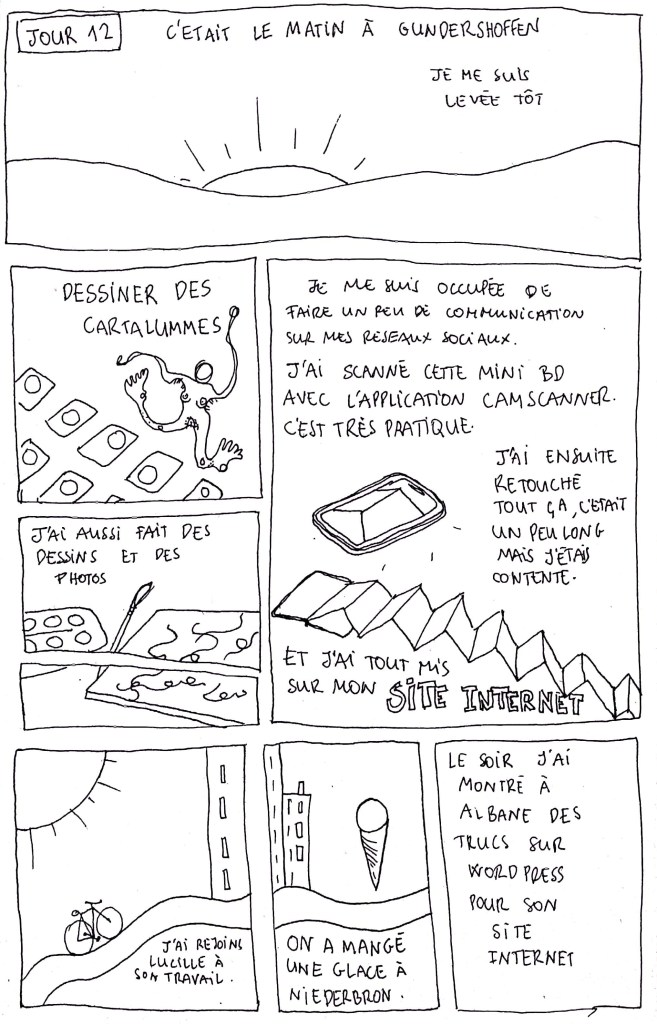 JOUR 12
C'ETAIT LE MATIN À GUNDERSHOFFEN
JE ME SUIS
LEVÉE TÔT
DESSINER DES
CARTALUMMES
J'AI AUSSI FAIT DES
DESSINS ET DES
PHOTOS
JE ME SUIS OCCUPÉE DE
FAIRE UN PEU DE COMMUNICATION
SUR MES RÉSEAUX SOCIAUX.
J'AI SCANNÉ CETTE MINI BD
AVEC L'APPLICATION CAMSCANNER.
C'EST TRÈS PRATIQUE.
J'AI ENSUITE
RETOUCHÉ
TOUT ÇA, C'ÉTAIT
UN PEU LONG
MAIS J'ÉTAIS
CONTENTE.
ET J'AI TOUT MIS
SUR MON SITE INTERNET
J'AI REJOINS
LUCILLE À
SON TRAVAIL.
ON A MANGÉ
UNE GLACE À
NIEDERBRON.
LE SOIR J'AI
MONTRÉ À
ALBANE DES
TRUCS SUR
WORDPRESS
POUR SON
SITE
INTERNET